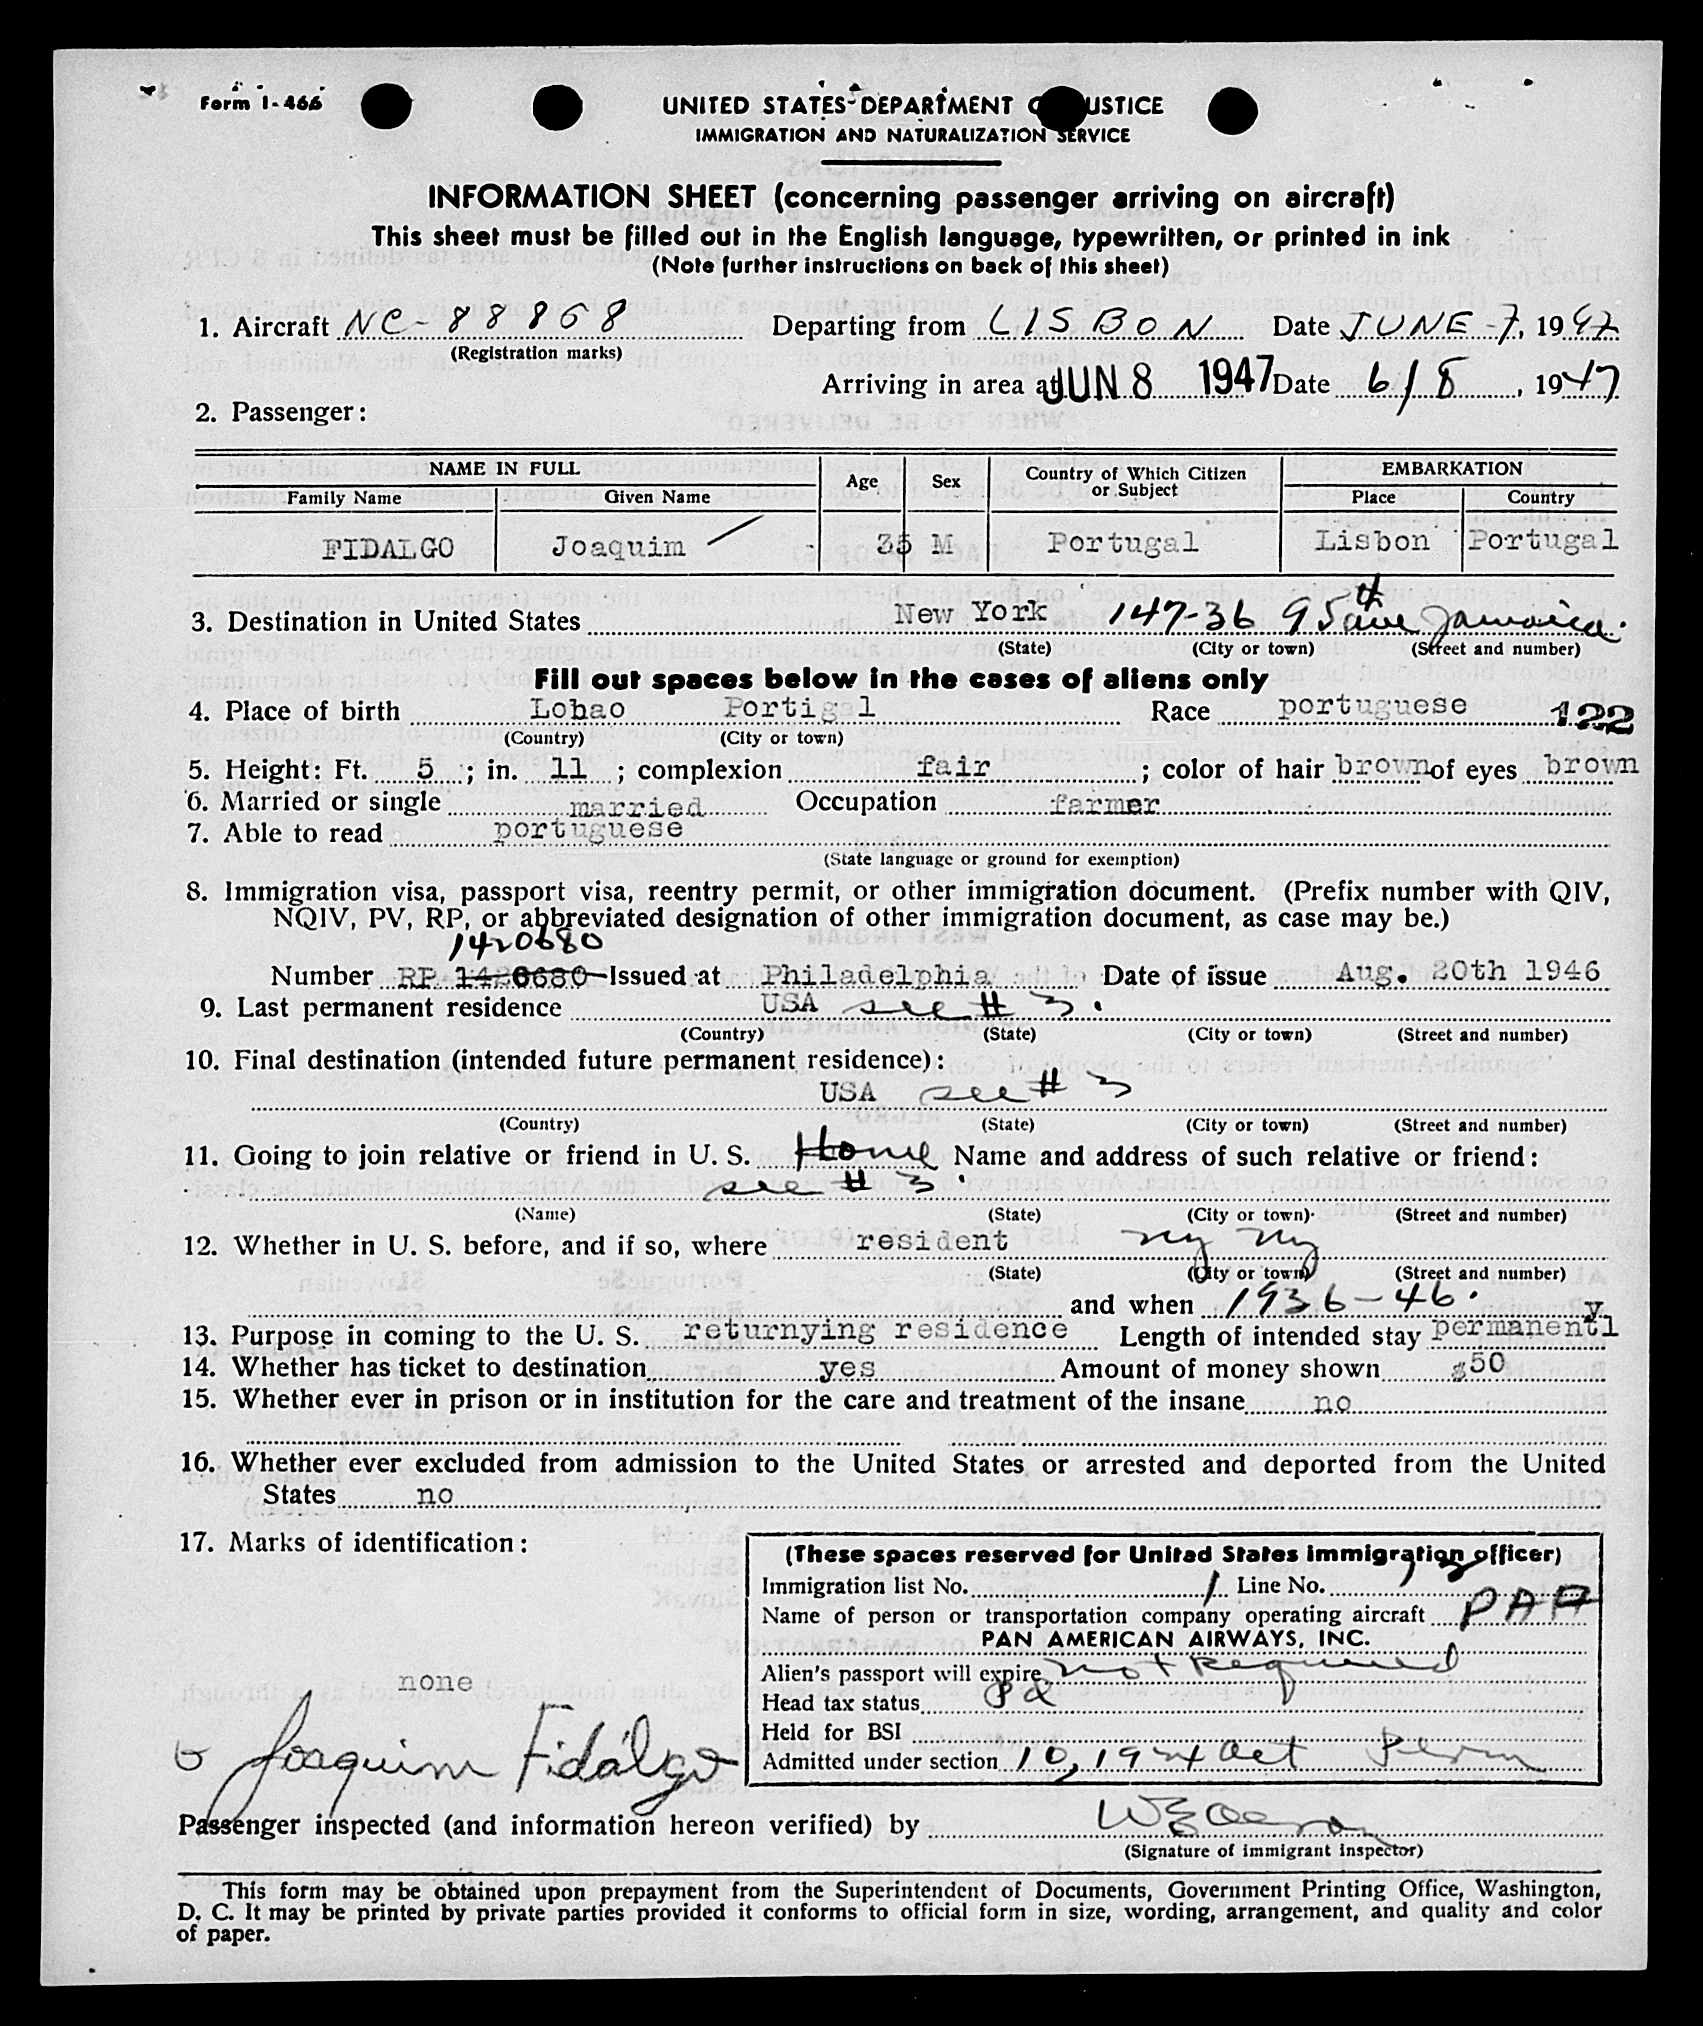 Form I-466
UNITED STATES DEPARTMENT O USTICE
IMMIGRATION AND NATURALIZATION SERVICE
INFORMATION SHEET (concerning passenger arriving on aircraft)
This sheet must be filled out in the English language, typewritten, or printed in ink
(Note further instructions on back of this sheet)
1. Aircraft NC-88868 Departing from LISBON Date JUNE-7, 1947
(Registration marks)
Arriving in area at JUN 8 1947 Date 6/8, 1947
2. Passenger:
NAME IN FULL Age Sex Country of Which Citizen or Subject EMBARKATION
Family Name Given Name Place Country
FIDALGO Joaquim 35 M Portugal Lisbon Portugal
3. Destination in United States New York 147-36 95th ave Jamaica.
(State) (City or town) (Street and number)
Fill out spaces below in the cases of aliens only
4. Place of birth Lobao Portigal Race portuguese 122
(Country) (City or town)
5. Height: Ft. 5; in. 11; complexion fair; color of hair brown of eyes brown
6. Married or single married Occupation farmer
7. Able to read portuguese
(State language or ground for exemption)
8. Immigration visa, passport visa, reentry permit, or other immigration document. (Prefix number with QIV,
NQIV, PV, RP, or abbreviated designation of other immigration document, as case may be.)
1420680
Number RP 1420680 Issued at Philadelphia Date of issue Aug. 20th 1946
9. Last permanent residence USA see # 3.
(Country) (State) (City or town) (Street and number)
10. Final destination (intended future permanent residence):
USA see # 3
(Country) (State) (City or town) (Street and number)
11. Going to join relative or friend in U. S. Home Name and address of such relative or friend:
see # 3.
(Name) (State) (City or town) (Street and number)
12. Whether in U. S. before, and if so, where resident ny ny
(State) (City or town) (Street and number)
and when 1936-46.
13. Purpose in coming to the U. S. returnying residence Length of intended stay permanently
14. Whether has ticket to destination yes Amount of money shown $50
15. Whether ever in prison or in institution for the care and treatment of the insane no
16. Whether ever excluded from admission to the United States or arrested and deported from the United
States no
17. Marks of identification:
none
Joaquim Fidalgo
(These spaces reserved for United States immigration officer)
Immigration list No. 1 Line No. 13
Name of person or transportation company operating aircraft PAA
PAN AMERICAN AIRWAYS, INC.
Alien's passport will expire not Required
Head tax status Pd
Held for BSI
Admitted under section 10, 1924 Act Perm
Passenger inspected (and information hereon verified) by
(Signature of immigrant inspector)
This form may be obtained upon prepayment from the Superintendent of Documents, Government Printing Office, Washington,
D. C. It may be printed by private parties provided it conforms to official form in size, wording, arrangement, and quality and color
of paper.